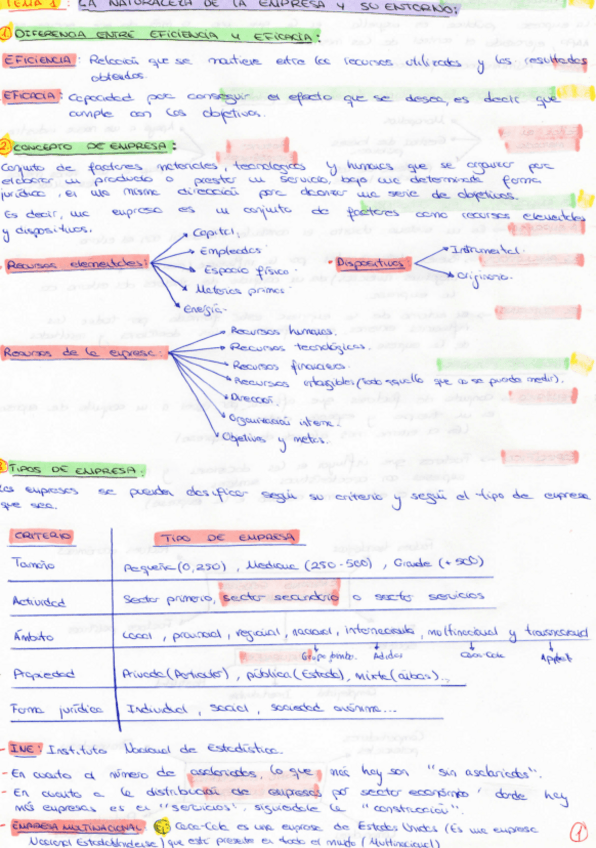 TEMA 1: LA NATURALEZA DE LA EMPRESA Y SU ENTORNO:
1 DIFERENCIA ENTRE EFICIENCIA Y EFICACIA:
EFICIENCIA: Relación que se mantiene entre los recursos utilizados y los resultados
obtenidos.
EFICACIA: Capacidad para conseguir el efecto que se desea, es decir que
cumple con los objetivos.
2 CONCEPTO DE EMPRESA:
Conjunto de factores materiales, tecnológicos y humanos que se organizan para
elaborar un producto o prestar un servicio, bajo una determinada forma
jurídica, en una misma dirección para alcanzar una serie de objetivos.
Es decir, una empresa es un conjunto de factores como recursos elementales
y dispositivos.
Recursos elementales:
Capital.
Empleados.
Espacio físico.
Materias primas.
Energía.
Dispositivos:
Instrumental.
Originario.
Recursos de la empresa:
Recursos humanos.
Recursos tecnológicos.
Recursos financieros.
Recursos intangibles (Todo aquello que no se puede medir).
Dirección.
Organización interna.
Objetivos y metas.
TIPOS DE EMPRESA.
Las empresas se pueden clasificar según su criterio y según el tipo de empresa
que sea.
CRITERIO TIPO DE EMPRESA
Tamaño Pequeña (0,250), Mediana (250-500), Grande (+500)
Actividad Sector primario, sector secundario o sector servicios
Ámbito Local, provincial, regional, nacional, internacional, multinacional y transnacional
Adidas Coca-Cola
Propiedad Privada (Particular), pública (Estado), mixta (ambas)...
Forma jurídica Individual, social, sociedad anónima...
- INE: Instituto Nacional de Estadística.
- En cuanto al número de asalariados, lo que más hay son "sin asalariados".
- En cuanto a la distribución de empresas por sector económico, donde hay
más empresas es en "servicios", siguiéndole la "construcción".
- EMPRESA MULTINACIONAL Coca-Cola es una empresa de Estados Unidos (Es una empresa
Nacional Estadounidense) que está presente en todo el mundo (Multinacional)
1